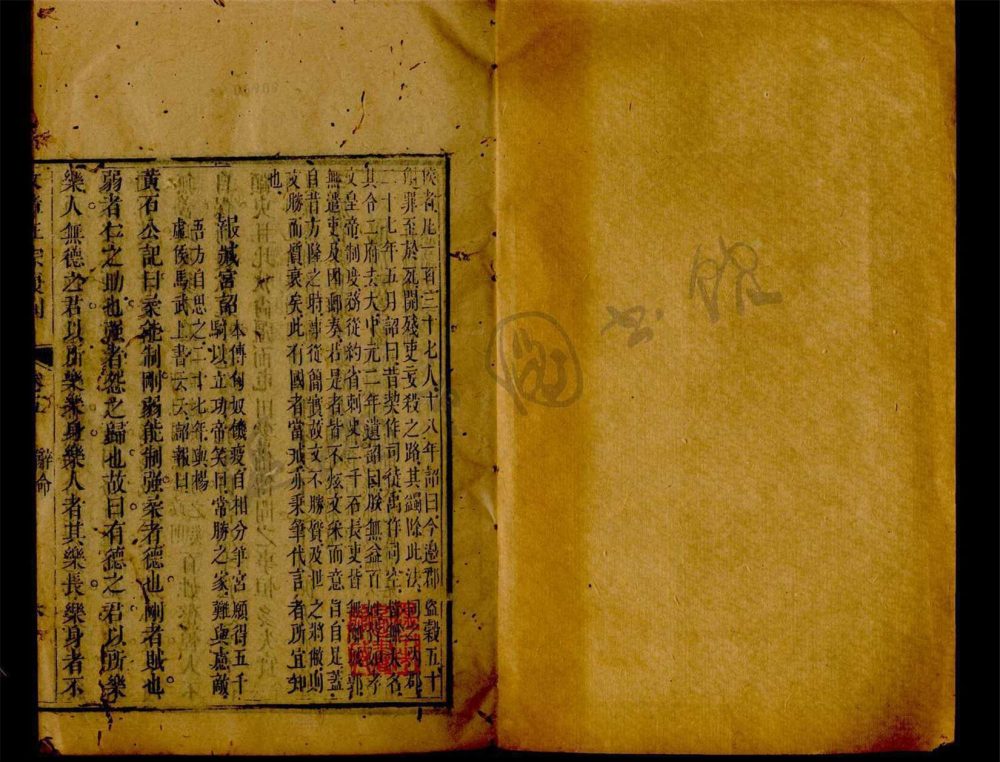 侯者凡一百三十七人十八年詔曰今邊郡盜穀五十
斛罪至於死開殘吏妄殺之路其蠲除此法同之內郡
二十七年五月詔曰昔契作司徒禹作司空皆無大名
其令二府去大中元二年遺詔曰朕無益百姓皆如孝
文皇帝制度務從約省刺史二千石長吏皆無離城郭
無遣吏及因郵奏若是者皆不炫文采而意旨自足蓋
自昔方隆之時事從簡實故文不勝質及世之將敝則
文勝而質衰矣此有國者當戒亦秉筆代言者所宜知
也
報臧宮詔
本傳匈奴饑疫自相分爭宮願得五千
騎以立功帝笑曰常勝之家難與慮敵
吾方自思之二十七年與楊
虛侯馬武上書云云詔報曰
黃石公記曰柔能制剛弱能制強柔者德也剛者賊也
弱者仁之助也強者怨之歸也故曰有德之君以所樂
樂人無德之君以所樂樂身樂人者其樂長樂身者不
文章正宗
辭命